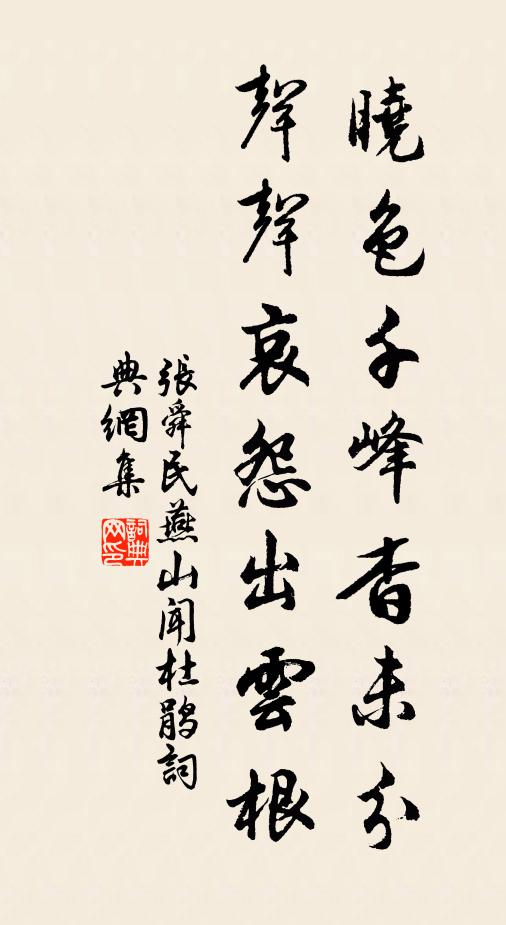 曉色千峰杳未分
聲聲哀怨出雲根
張舜民燕山聞杜鵑詞
典網集
詞典網印